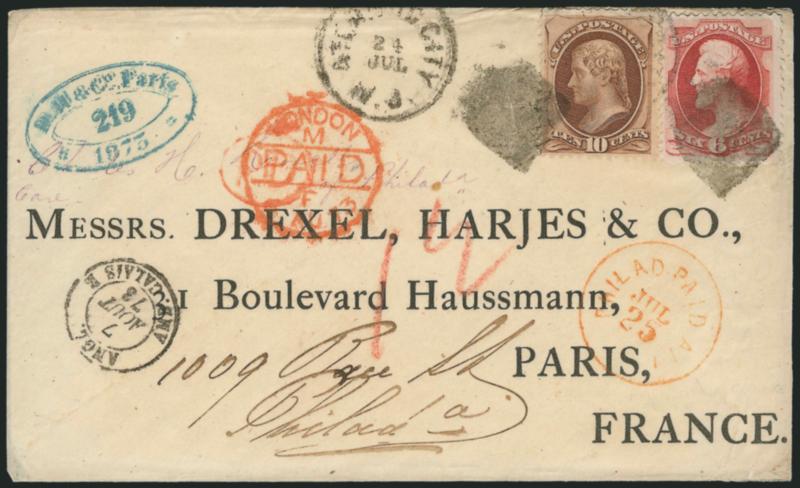 ATLANTIC CITY
24
JUL
N.J.
U.S. POSTAGE
TEN 10 CENTS
U.S. POSTAGE
SIX 6 CENTS
& Co. Paris
219
1873
LONDON
M
PAID
Philada
Care
MESSRS. DREXEL, HARJES & CO.,
12
ANGL. AMB. CALAIS
7
AOUT
73
31 Boulevard Haussmann,
PHILAD. PAID ALL
JUL
25
PARIS,
1009 Pine St
Philada
FRANCE.